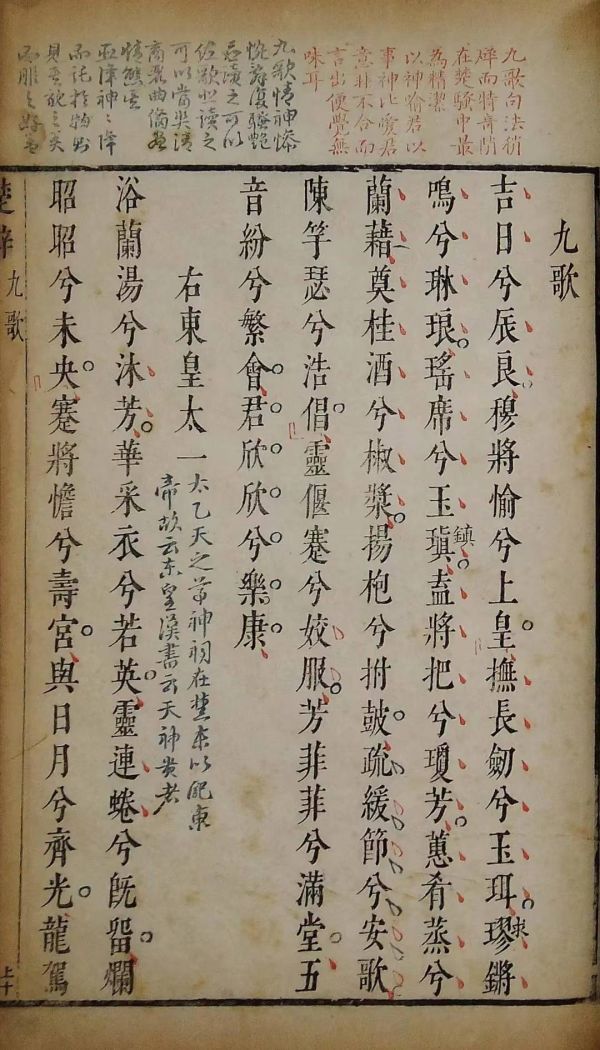 九歌句法稍
碎而特奇閒
在楚騷中最
為精潔
以神喻君以
事神比愛君
意非不合而
言出便覺無
味耳
九歌情神慘
惋詞復騷艷
喜讀之可以
佐歌悲讀之
可以當哭清
商麗曲備盡
情態矣
巫降神神降
而託於物則
九歌
吉日兮辰良穆將愉兮上皇撫長劒兮玉珥璆鏘
求
鳴兮琳琅瑤席兮玉瑱盍將把兮瓊芳蕙肴蒸兮
鎮
蘭藉奠桂酒兮椒漿揚枹兮拊鼓疏緩節兮安歌
陳竽瑟兮浩倡靈偃蹇兮姣服芳菲菲兮滿堂五
音紛兮繁會君欣欣兮樂康
右東皇太一
太乙天之尊神祠在楚東以配東
帝故云東皇漢書云天神貴者
浴蘭湯兮沐芳華采衣兮若英靈連蜷兮既留爛
昭昭兮未央蹇將憺兮壽宮與日月兮齊光龍駕
楚辭 九歌 上十